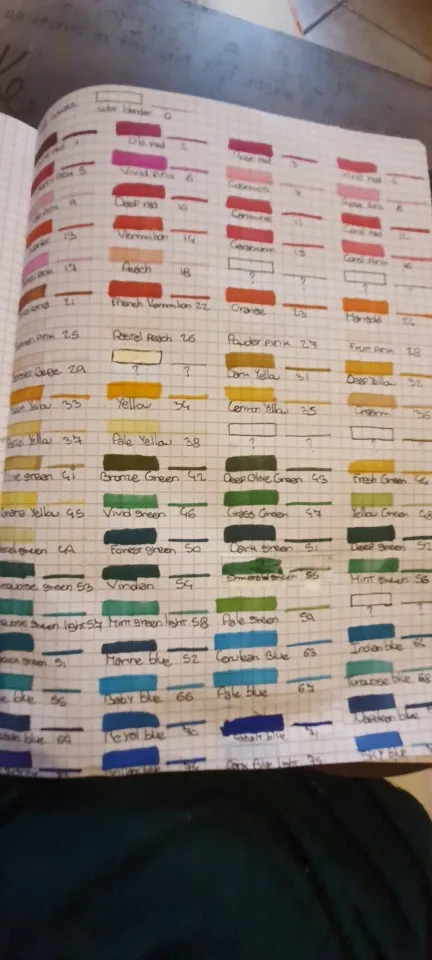 color blender 0
1 Old red 2 Rose red 3 Vivid red 4
Pink 5 Vivid Pink 6 7 8
9 Deep red 10 Carmine 11 Coral red 12
13 Vermilion 14 Geranium 15 Coral Pink 16
Pink 17 Peach 18 ? ?
21 French Vermilion 22 Orange 23 24
Pink 25 Pastel Peach 26 Powder Pink 27 Fruit Pink 28
29 ? ? Dark Yellow 31 Deep Yellow 32
Yellow 33 Yellow 34 Lemon Yellow 35 Cream 36
Pastel Yellow 37 Pale Yellow 38 ? ? ?
Olive green 41 Bronze Green 42 Deep Olive Green 43 Fresh Green 44
Yellow 45 Vivid green 46 Grass Green 47 Yellow Green 48
green 49 Forest green 50 Dark green 51 Deep green 52
green 53 Viridian 54 Emerald green 55 Mint green 56
green light 57 Mint green light 58 Pale green 59 ? ?
green 51 Marine blue 52 Cerulean Blue 63 Indian blue
blue Baby blue 66 Pale blue 67 Turquoise blue 68
blue 69 Royal blue 70 Cobalt blue 71 blue
Dark Blue light 75 Sky blue